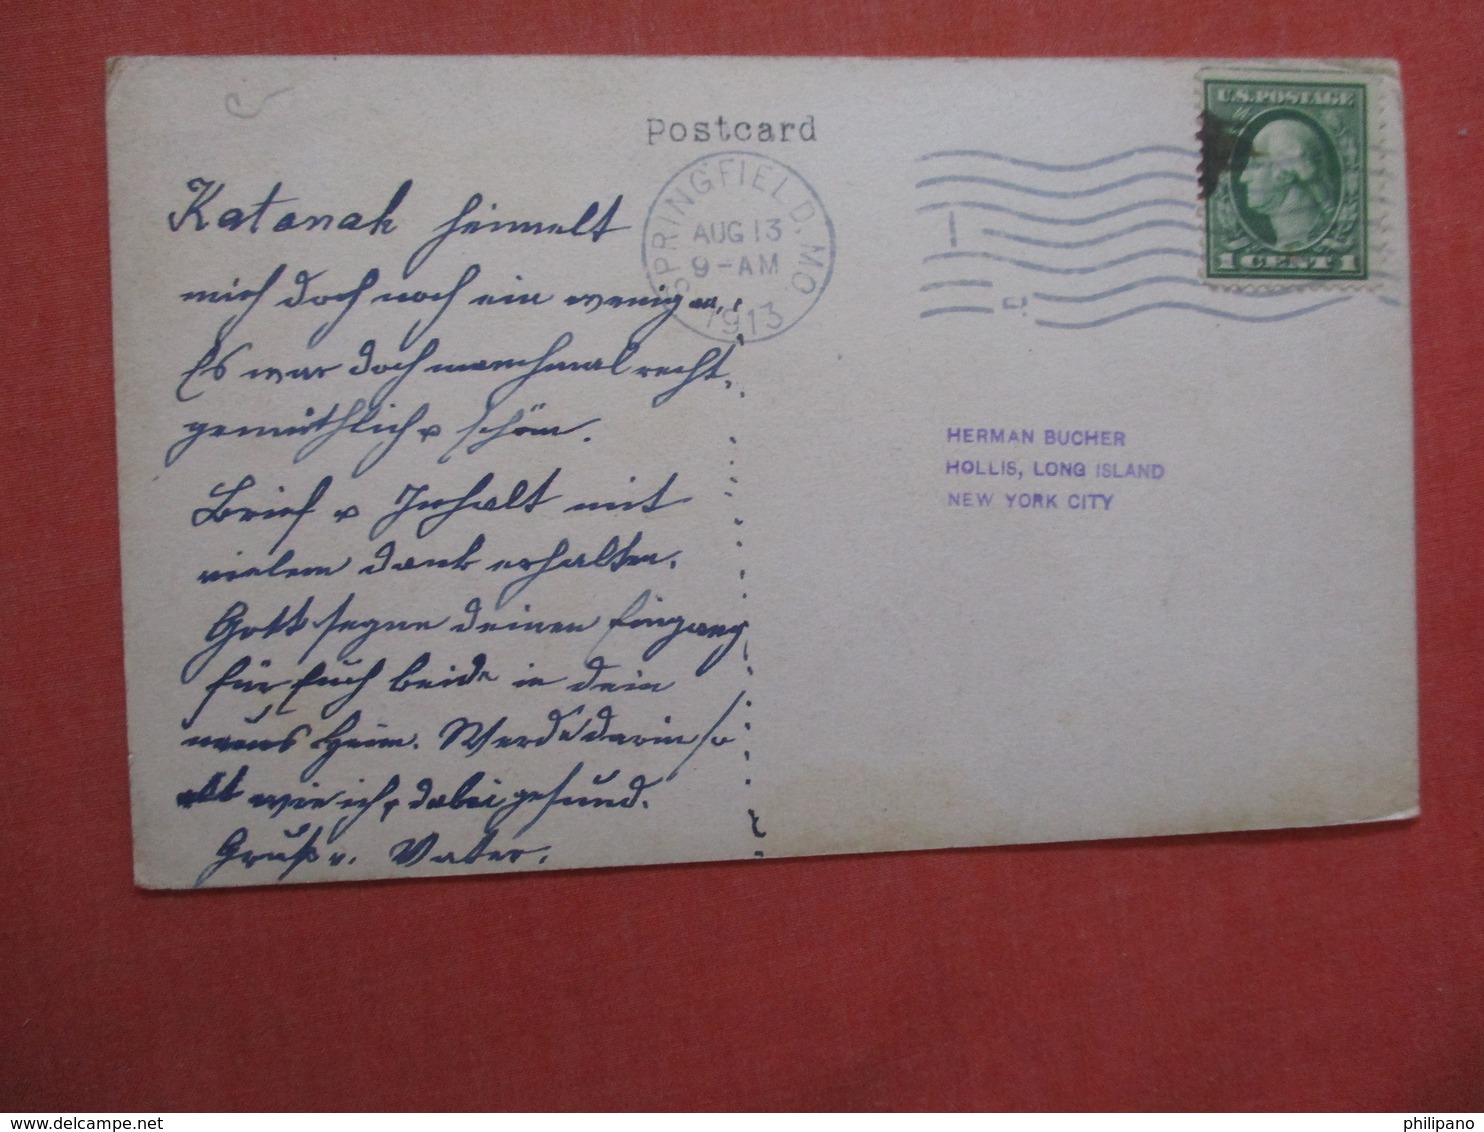 Postcard
SPRINGFIELD, MO.
AUG 13
9-AM
1913
U.S. POSTAGE
1 CENT 1
Katonah heimelt
mich doch noch ein wenig an.
Es war doch manchmal recht
gemüthlich u schön.
Brief u Inhalt mit
vielem dank erhalten.
Gott segne deinen Eingang
für Euch beide in dein
neues Heim. Werde darin so
alt wie ich, dabei gesund.
Gruß v. Vater.
HERMAN BUCHER
HOLLIS, LONG ISLAND
NEW YORK CITY
philipano